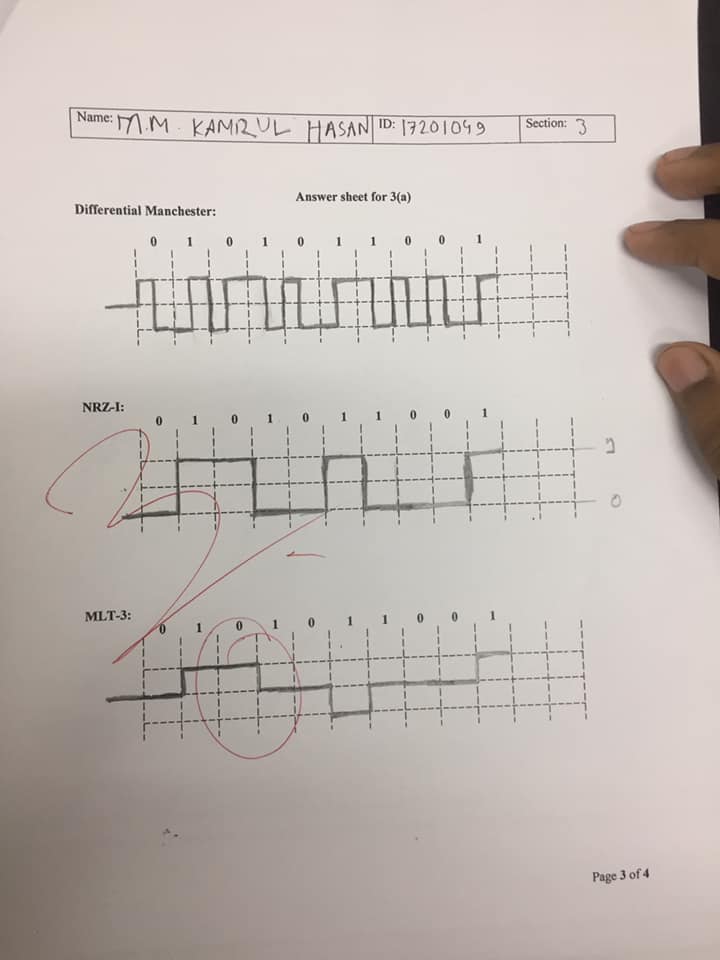 Name: M.M. KAMRUL HASAN ID: 17201049 Section: 3
Answer sheet for 3(a)
Differential Manchester:
0 1 0 1 0 1 1 0 0 1
NRZ-I:
0 1 0 1 0 1 1 0 0 1
0
MLT-3:
0 1 0 1 0 1 1 0 0 1
Page 3 of 4